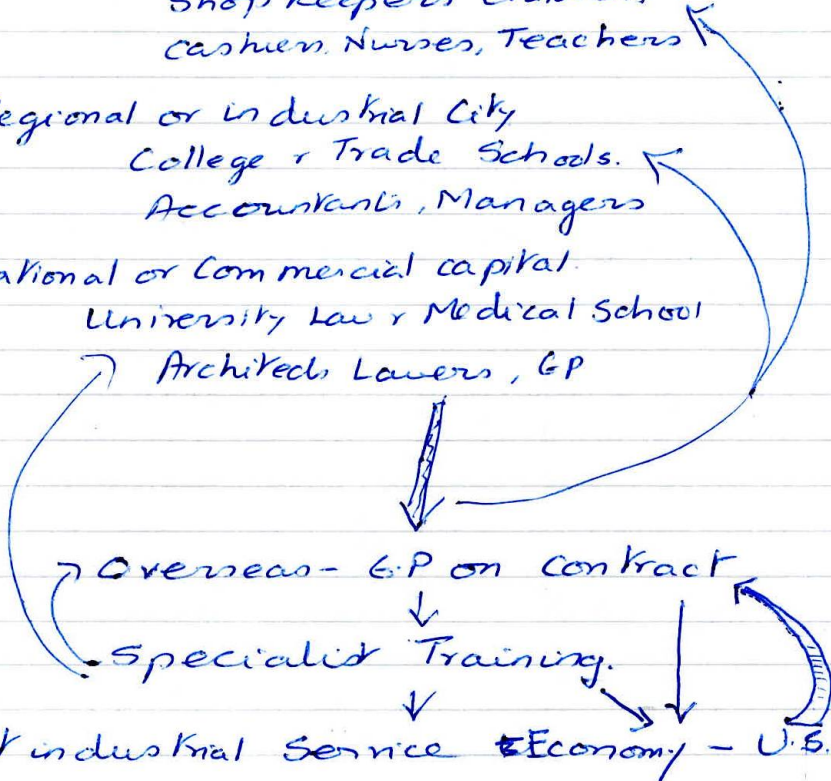 Shop Keepers
cashiers, Nurses, Teachers
egional or industrial City
College & Trade Schools.
Accountants, Managers
ational or Commercial capital.
University Law & Medical School
Architects Lawers, GP
Overseas - G.P on contract
Specialist Training.
industrial Service Economy - U.S.